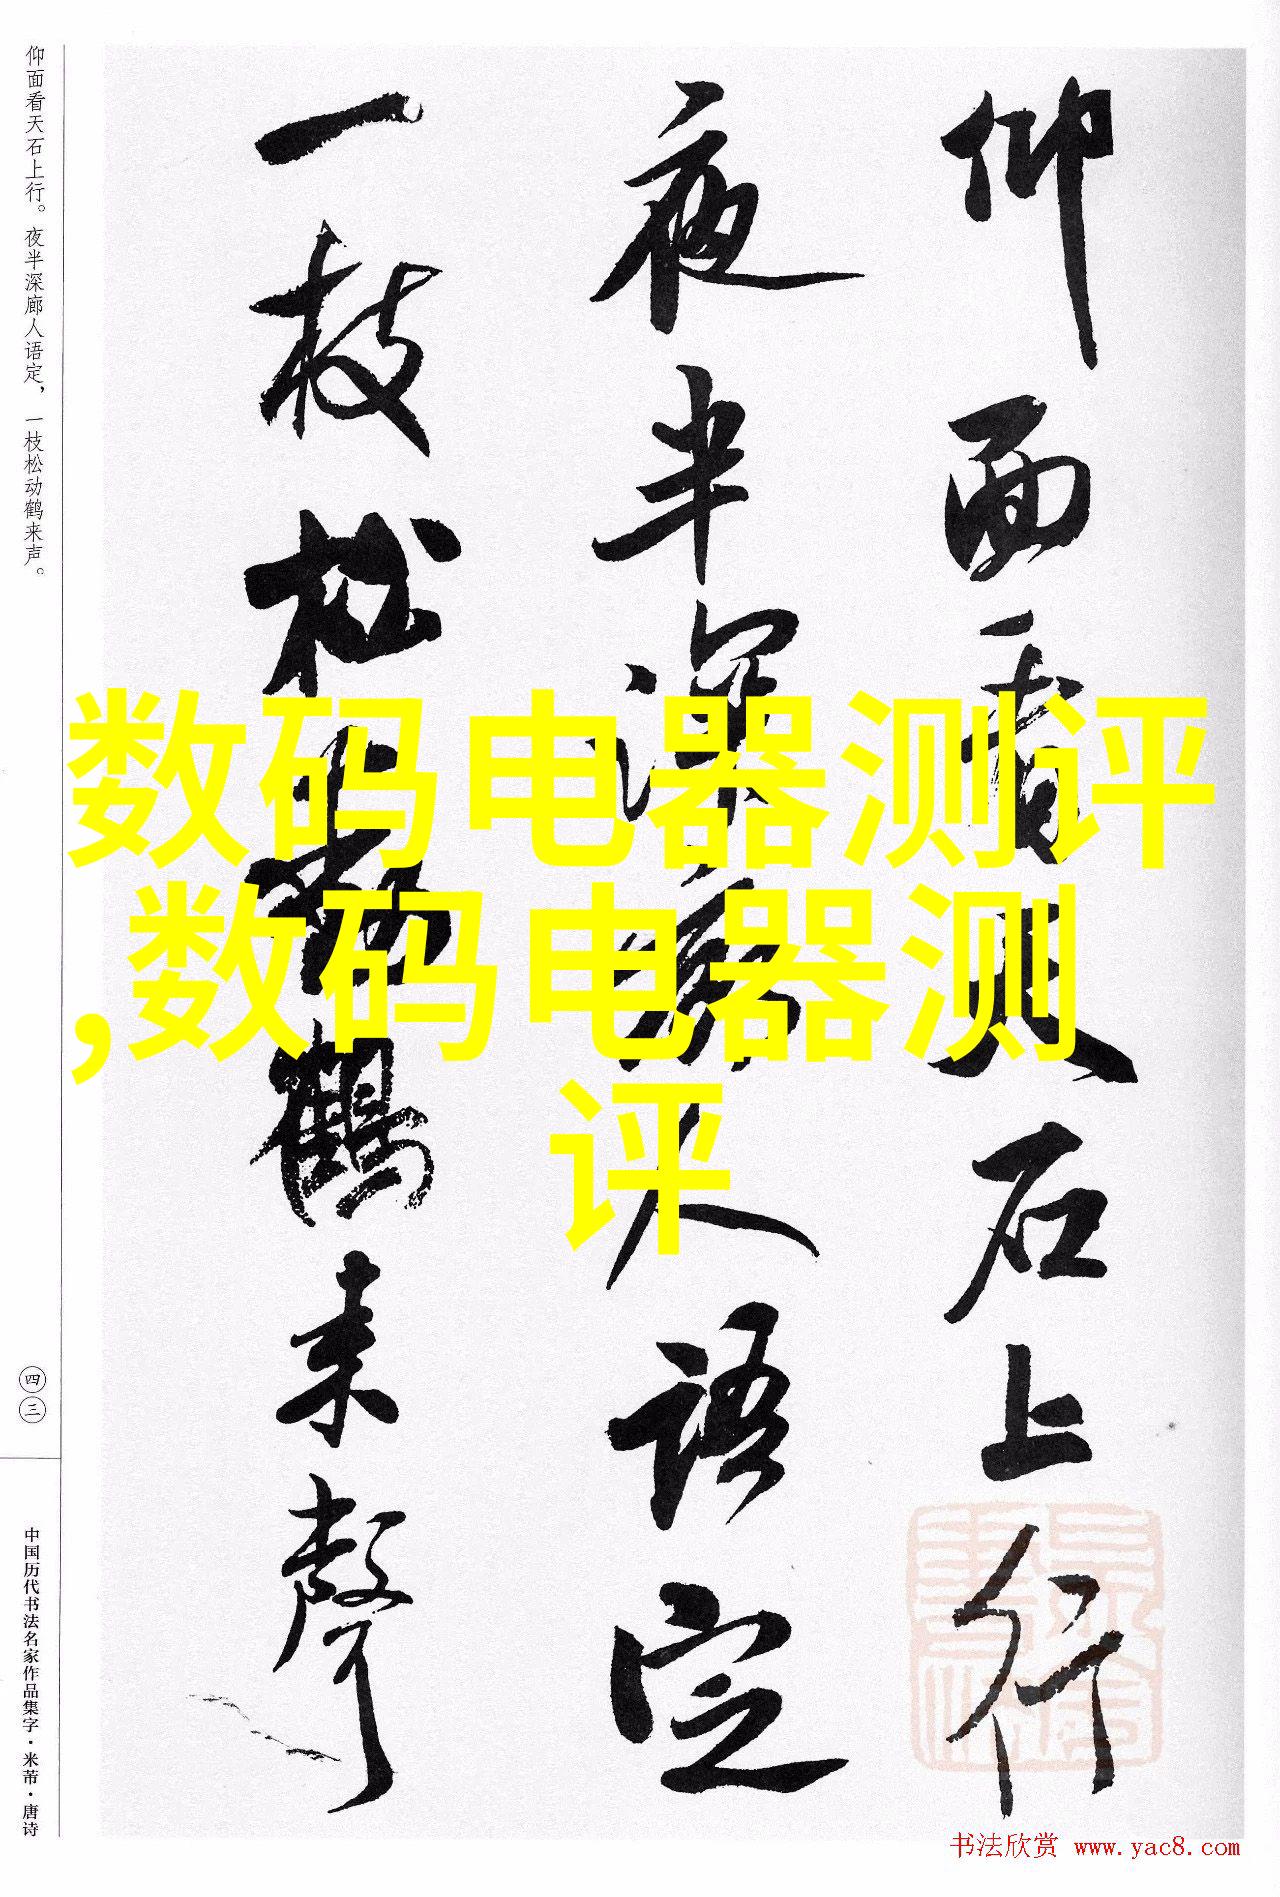 仰面看天石上行
夜半深廊人语定
一枝松动鹤来声
仰面看天石上行。夜半深廊人语定，一枝松动鹤来声。
四三
中国历代书法名家作品集字·米芾·唐诗
数码电器测评
,数码电器测
评
书法欣赏 www.yac8.com